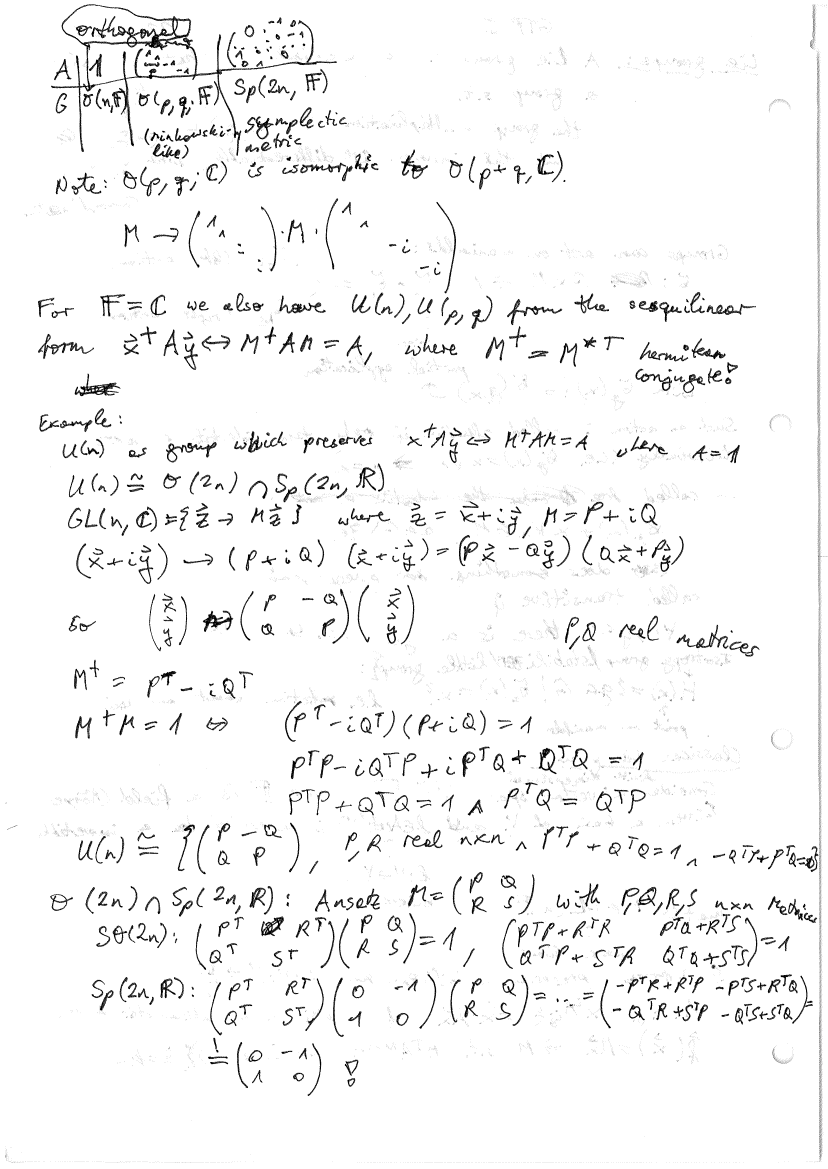 orthogonal
A | 1 | (1 1 -1 -1) | (0 -1 0 0 -1 1 0 0 1 0)
G | O(n,𝔽) | O(p,q;𝔽) | Sp(2n, 𝔽)
(minkowski-like) symplectic metric
Note: O(p,q;ℂ) is isomorphic to O(p+q,ℂ).
M → (1 1 i i) · M · (1 1 -i -i)
For 𝔽=ℂ we also have U(n), U(p,q) from the sesquilinear
form x⃗†Ay⃗ ⇔ M†AM = A, where M† = M*T hermitean conjugate!
Example:
U(n) as group which preserves x†1y⃗ ⇔ M†AM=A where A=1
U(n) ≅ O(2n) ∩ Sp(2n,ℝ)
GL(n,ℂ) = {z⃗ → Mz⃗} where z⃗ = x⃗+iy⃗, M=P+iQ
(x⃗+iy⃗) → (P+iQ) (x⃗+iy⃗) = (Px⃗ - Qy⃗) (Qx⃗+Py⃗)
so (x⃗ y⃗) → (P -Q Q P)(x⃗ y⃗) P,Q real matrices
M† = PT - iQT
M†M = 1 ⇔ (PT-iQT)(P+iQ) = 1
PTP-iQTP+iPTQ+QTQ = 1
PTP+QTQ=1 ∧ PTQ = QTP
U(n) ≅ {(P -Q Q P), P,R real n×n ∧ PTP + QTQ=1 ∧ -QTP+PTQ=0}
O(2n) ∩ Sp(2n,ℝ): Ansatz M=(P Q R S) with P,Q,R,S n×n Matrices
SO(2n): (PT RT QT ST)(P Q R S)=1, (PTP+RTR PTQ+RTS QTP+STR QTQ+STS)=1
Sp(2n,ℝ): (PT RT QT ST)(0 -1 1 0)(P Q R S)=...=(-PTR+RTP -PTS+RTQ -QTR+STP -QTS+STQ)=
!= (0 -1 1 0) !